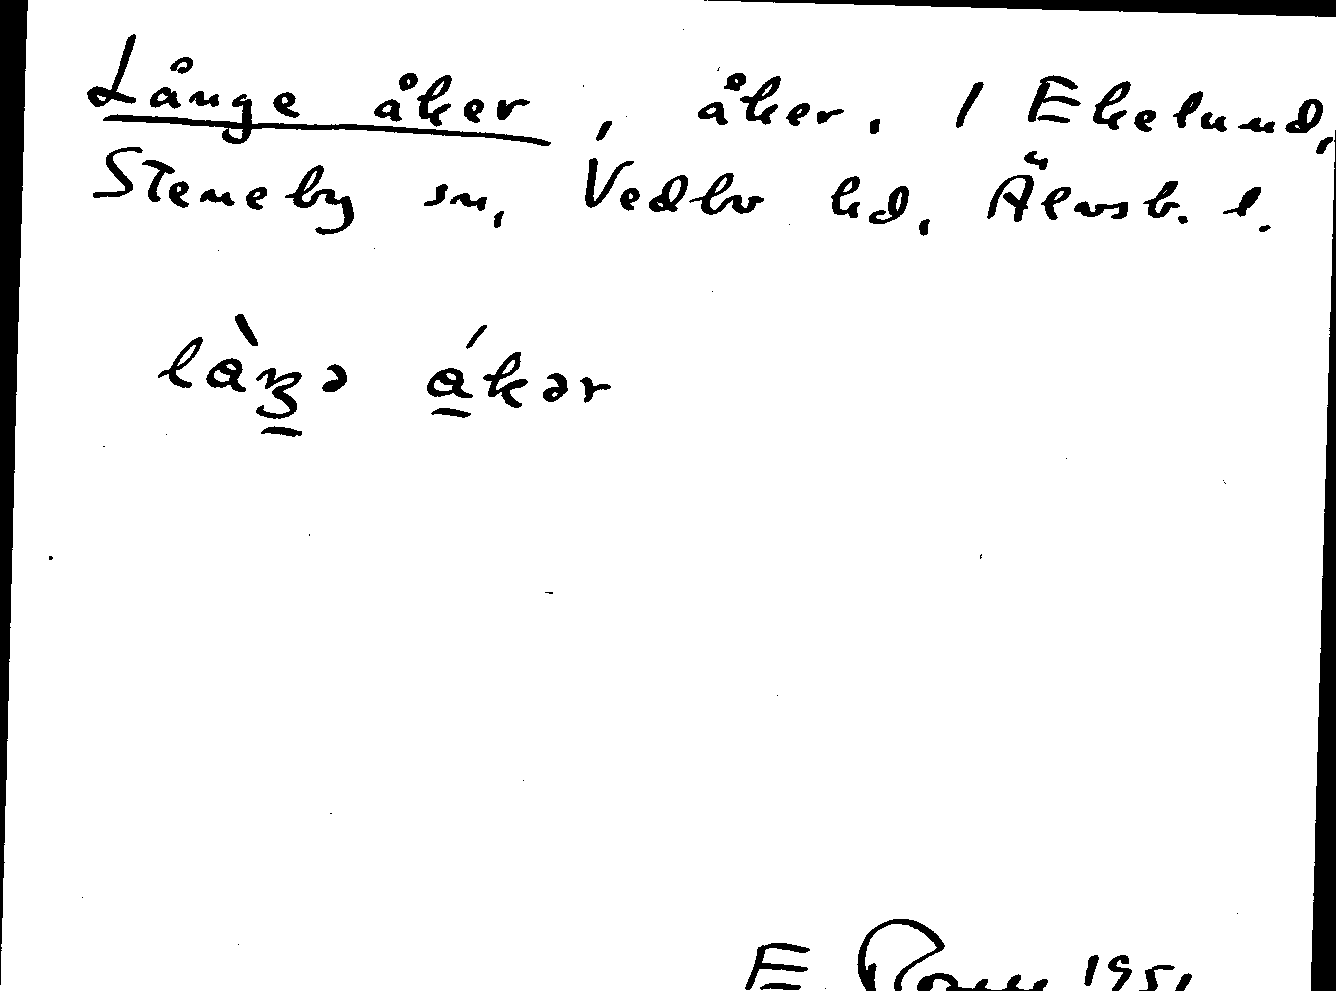 Långe åker, åker. 1 Ekelund,
Steneby sn, Vedbo hd, Älvsb. l.
làꞑ̲ə á̲kər
E 1951